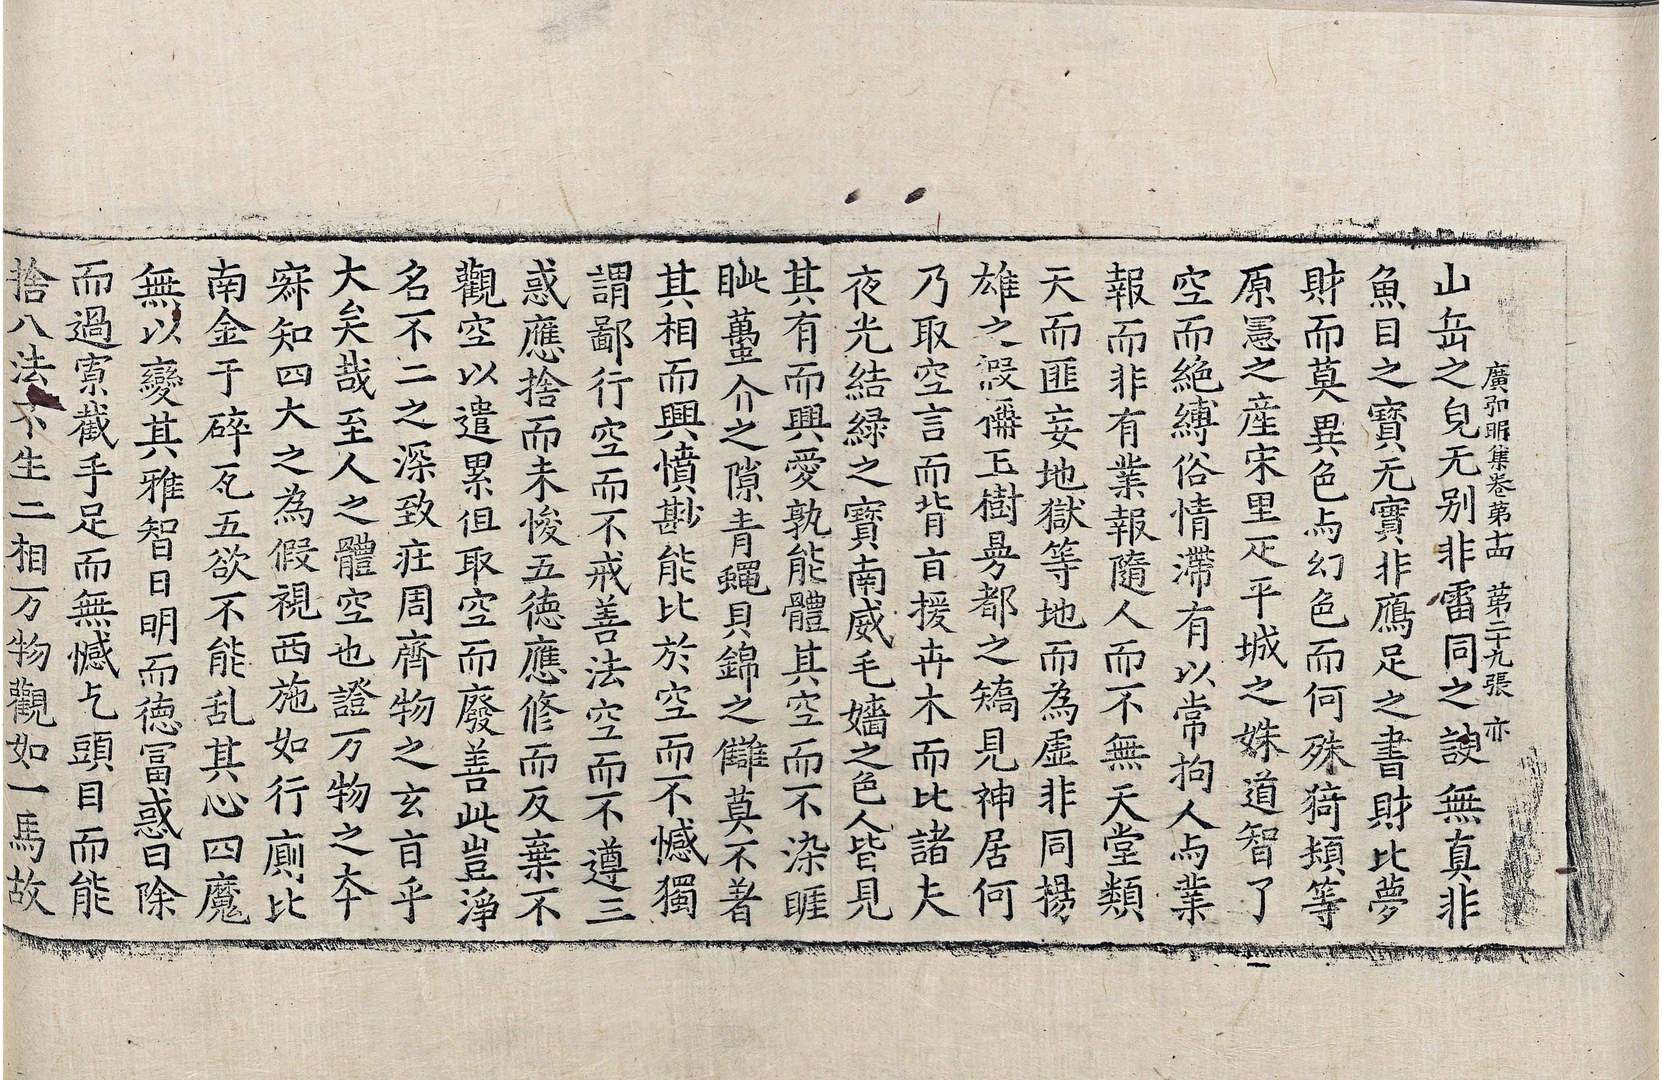 廣弘明集卷第十四　第二十九張　亦
山岳之皃无别非雷同之諛無真非
魚目之寳无實非鴈足之書財比夢
財而莫異色与幻色而何殊猗頓等
原憲之產宋里疋平城之姝道智了
空而絶縛俗情滯有以常拘人与業
報而非有業報隨人而不無天堂類
天而匪妄地獄等地而為虛非同揚
雄之假稱玉樹㫄都之矯見神居何
乃取空言而背盲援卉木而比諸夫
夜光結緑之寳南威毛嬙之色人皆見
其有而興愛孰能體其空而不染睚
眦蠆介之隙青蠅貝錦之讎莫不著
其相而興憤尠能比於空而不憾獨
謂鄙行空而不戒善法空而不遵三
惑應捨而未悛五德應修而反棄不
觀空以遣累但取空而廢善此豈淨
名不二之深致庄周齊物之玄旨乎
大矣哉至人之體空也證万物之本
寂知四大之為假視西施如行廁比
南金于碎瓦五欲不能乱其心四魔
無以變其雅智日明而德富惑日除
而過索截手足而無憾乞頭目而能
捨八法不生二相万物觀如一馬故